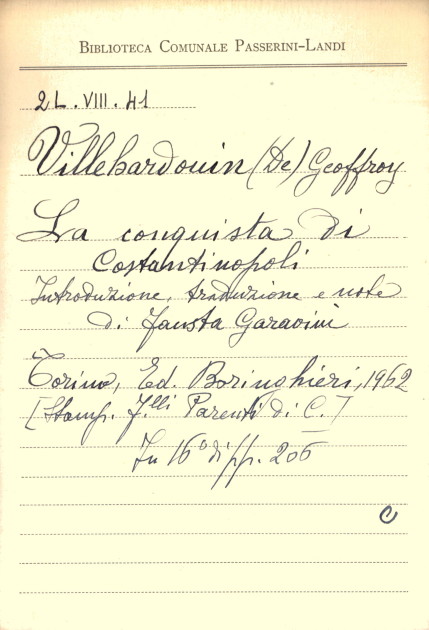 BIBLIOTECA COMUNALE PASSERINI-LANDI
2L.VIII.41
Villehardouin (De) Geoffroy
La conquista di
Costantinopoli
Introduzione, traduzione e note
di Fausta Garavini
Torino, Ed. Boringhieri, 1962
[Stamp. F.lli Parenti di C.]
In 16° di pp. 206
C